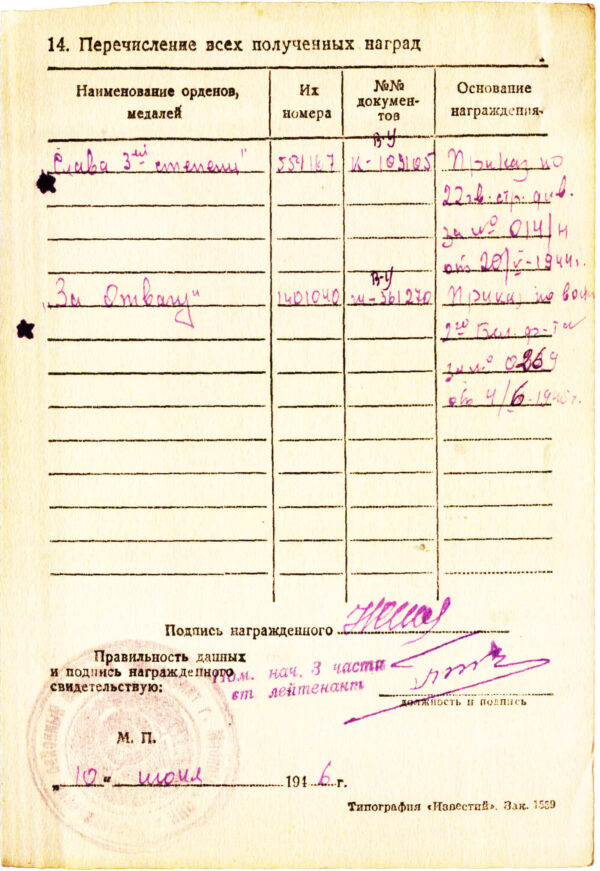 14. Перечисление всех полученных наград
Наименование орденов, медалей
Их номера
№№ документов
Основание награждения
„Слава 3ей степени" 554167 В-У К-109105 Приказ по
22 гв. стр. див.
за № 014/н
от 20/V-1944г.
„За Отвагу" 1401040 В-У 561270 Приказ по
2го Бел. фр-та
за № 0269
от 4/6-194 г.
Подпись награжденного
Правильность данных
и подпись награжденного
свидетельствую:
Пом. нач. 3 части
ст. лейтенант
должность и подпись
М. П.
„10" июня 1946 г.
Типография «Известий». Зак. 1559